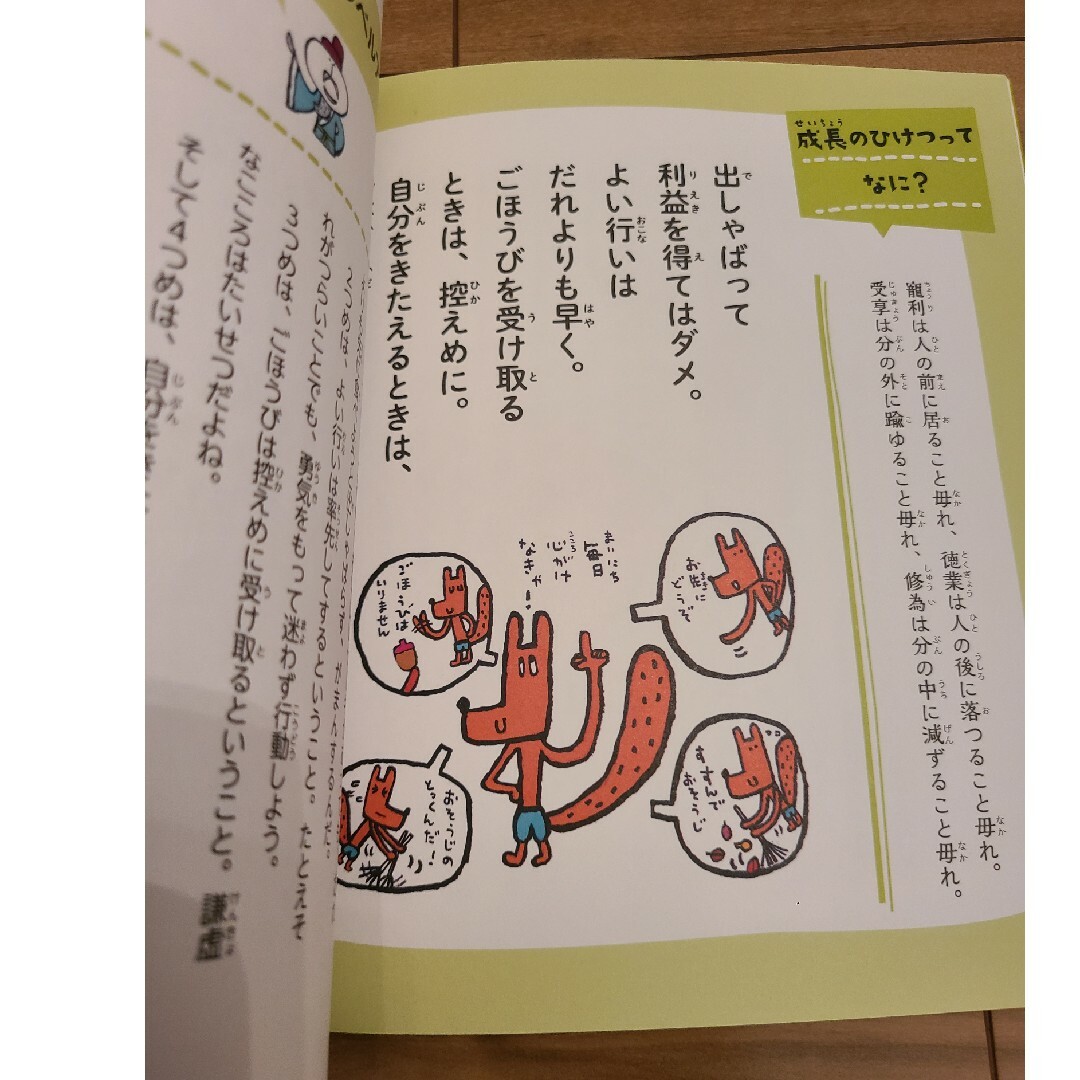 成長のひけつって
なに？
寵利は人の前に居ること毋れ、徳業は人の後に落つること毋れ。
受享は分の外に踰ゆること毋れ、修為は分の中に減ずること毋れ。
出しゃばって
利益を得てはダメ。
よい行いは
だれよりも早く。
ごほうびを受け取る
ときは、控えめに。
自分をきたえるときは、
お先に
どうぞ
まいにち
毎日
心がけ
なきゃ
ごほうびは
いりません
すすんで
おそうじ
おそうじの
とっくんだ！
2つめは、よい行いは率先してするということ。たとえそ
れがつらいことでも、勇気をもって迷わず行動しよう。
3つめは、ごほうびは控えめに受け取るということ。謙虚
なこころはたいせつだよね。
そして4つめは、自分を